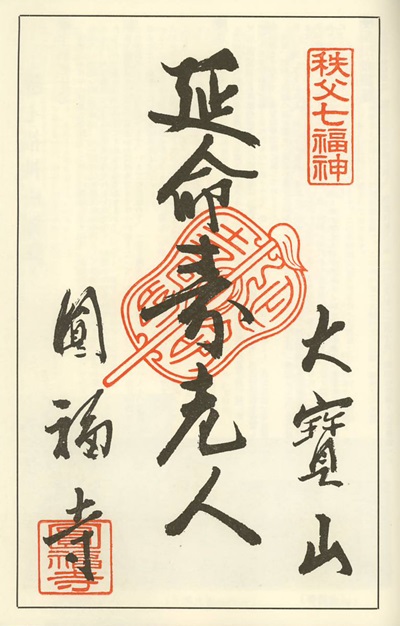 秩父七福神
大寳山
延命寿老人
圓福寺
圓福寺